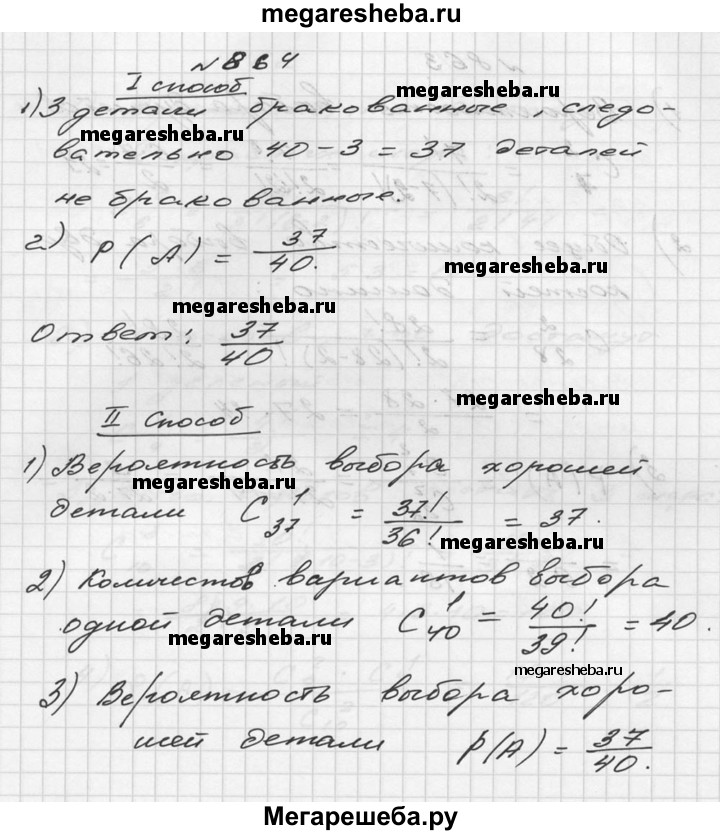 megaresheba.ru
№ 864
I способ
1) 3 детали бракованные, следо-
megaresheba.ru
megaresheba.ru
вательно 40 - 3 = 37 деталей
не бракованные.
2) P(A) = 37/40.
megaresheba.ru
megaresheba.ru
Ответ: 37/40
megaresheba.ru
II способ
1) Вероятность выбора хорошей
megaresheba.ru
детали C¹₃₇ = 37!/36! = 37.
megaresheba.ru
2) Количество вариантов выбора
одной детали C¹₄₀ = 40!/39! = 40.
megaresheba.ru
megaresheba.ru
3) Вероятность выбора хоро-
шей детали p(A) = 37/40.
Мегарешеба.ру